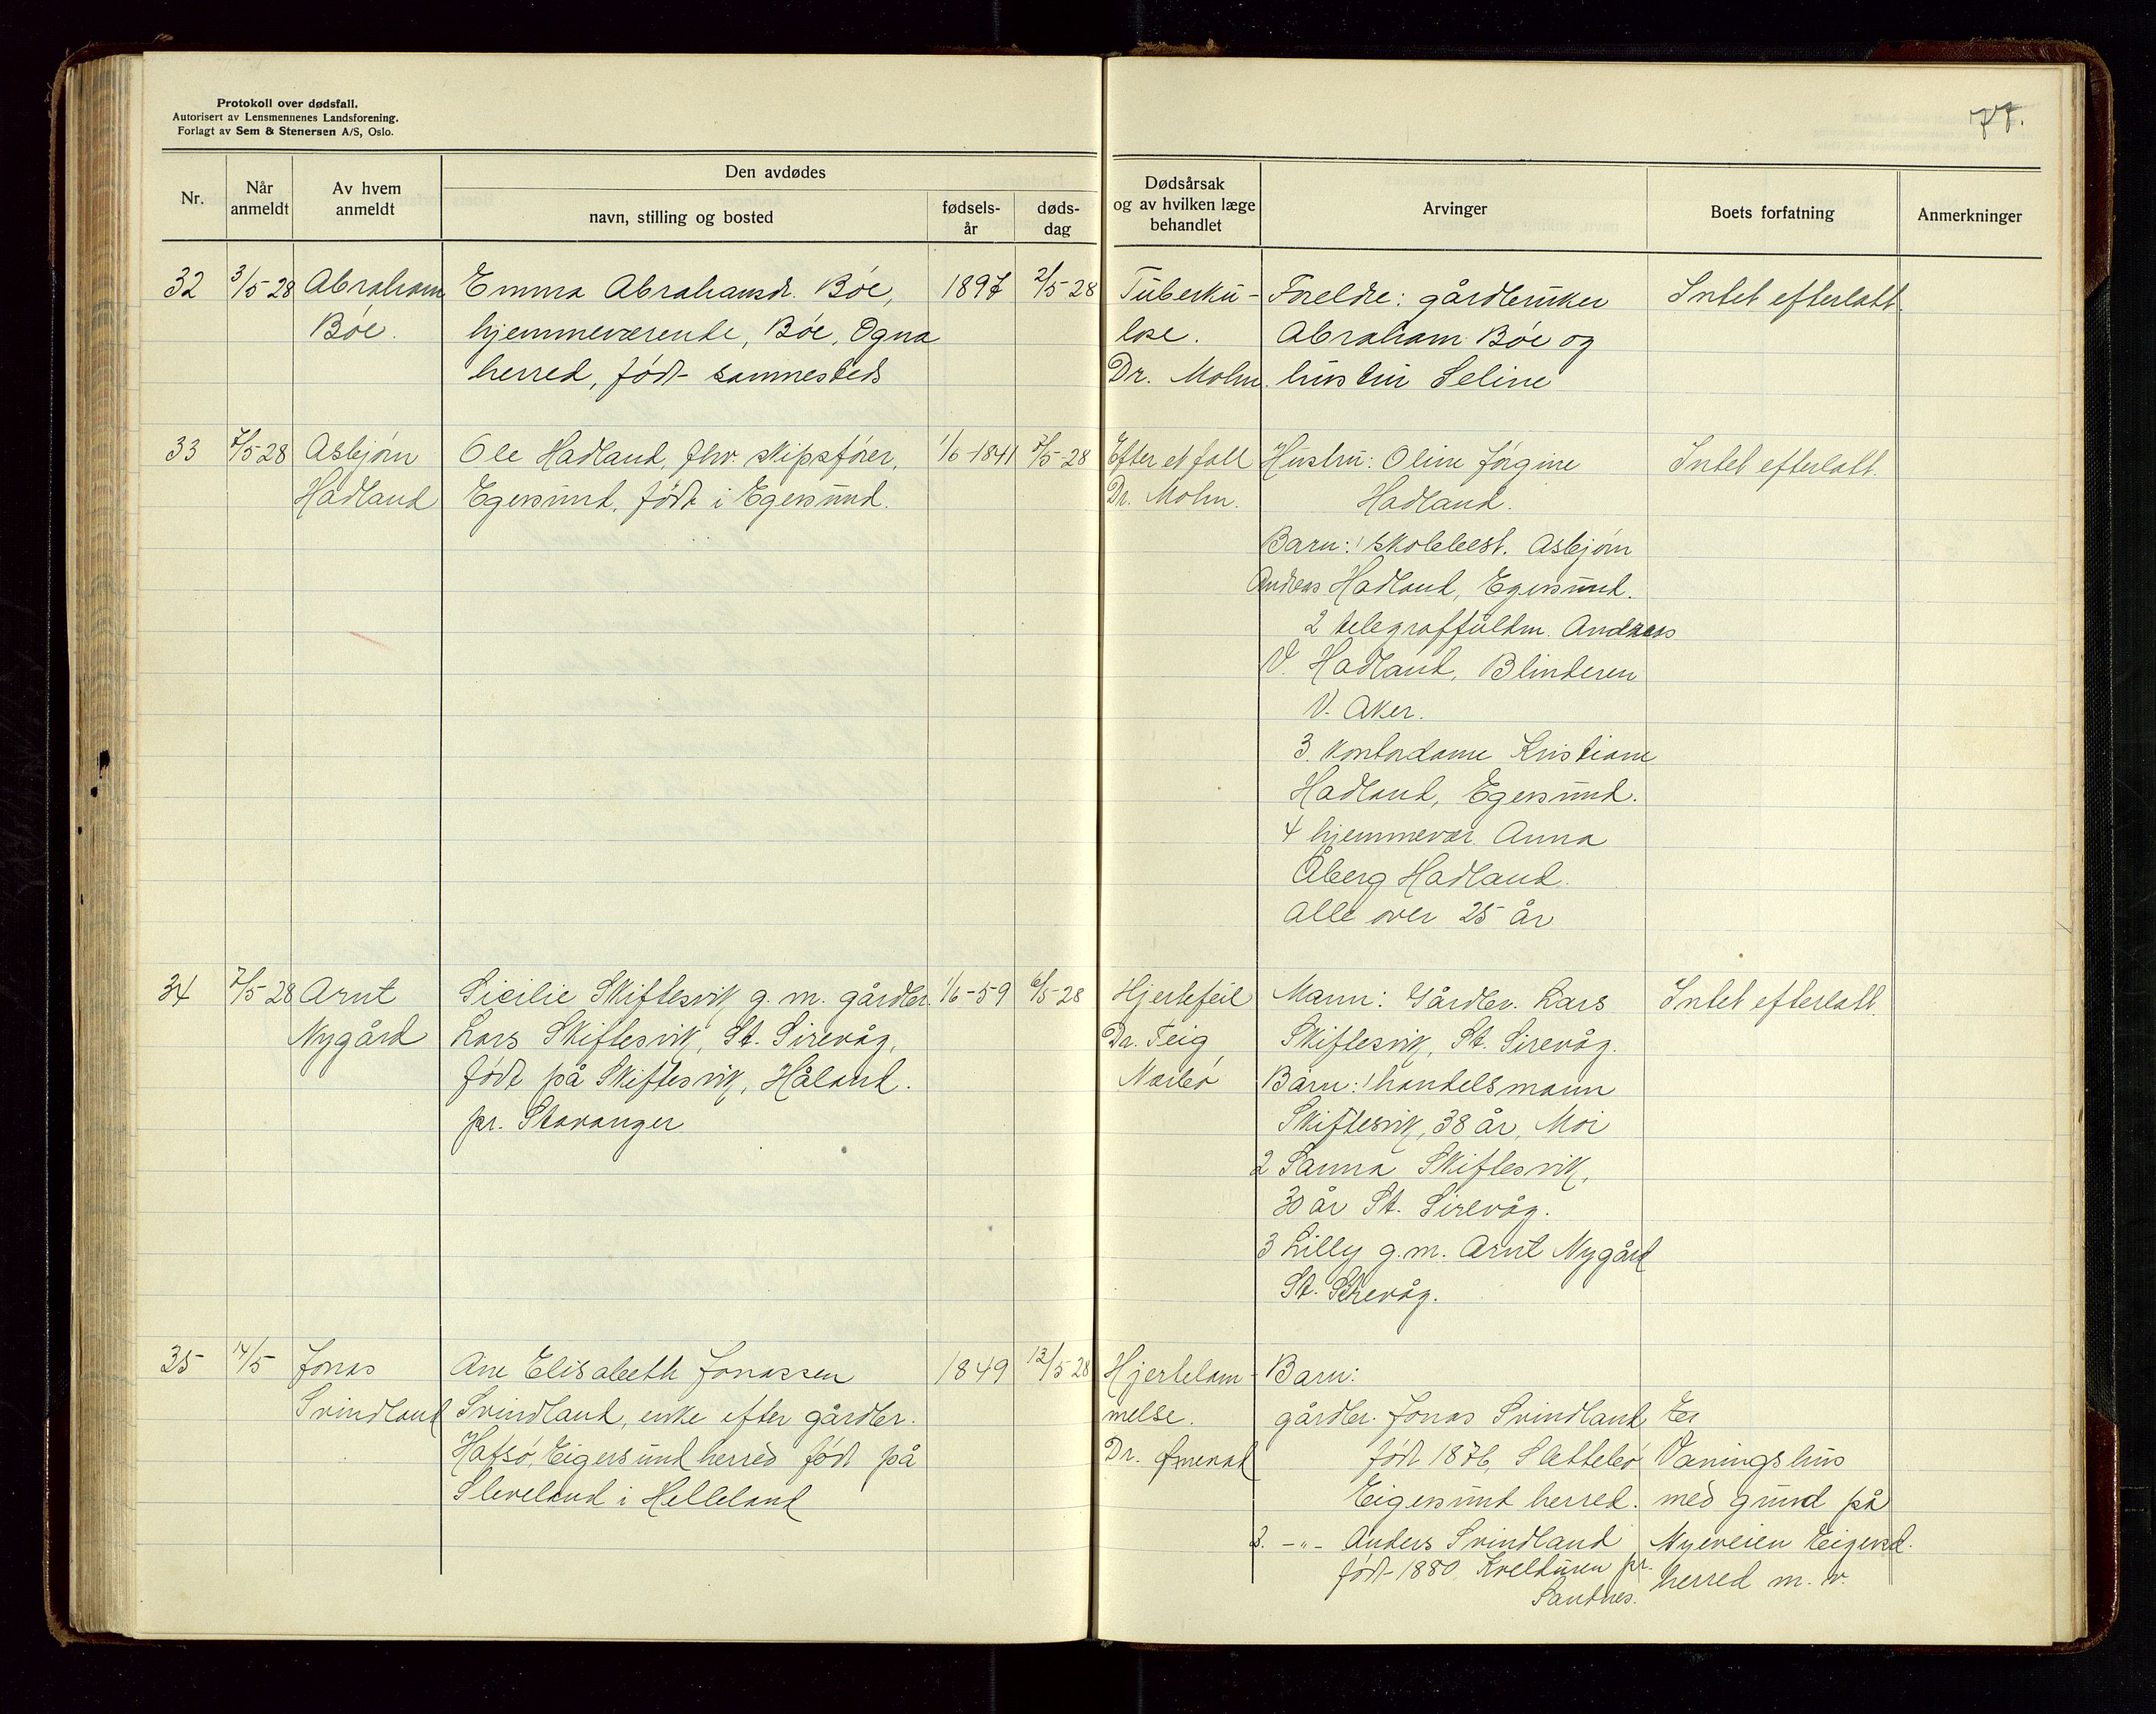 Protokoll over dødsfall.
Autorisert av Lensmennenes Landsforening.
Forlagt av Sem & Stenersen A/S, Oslo.
77.
Nr.
Når anmeldt
Av hvem anmeldt
Den avdødes
navn, stilling og bosted
fødsels-år
døds-dag
Dødsårsak og av hvilken læge behandlet
Arvinger
Boets forfatning
Anmerkninger
32
3/5-28
Abraham
Bøe.
Emma Abrahamsdr. Bøe,
hjemmeværende, Bøe, Ogna
herred, født sammesteds
1897
2/5-28
Tuberku-
lose.
Dr. Mohn.
Foreldre: gårdbruker
Abraham Bøe og
hustru Seline
Intet efterlatt.
33
7/5-28
Asbjørn
Hadland
Ole Hadland, fhv. skipsfører,
Egersund, født i Egersund.
1/6-1841
7/5-28
Efter et fall
Dr. Mohn.
Hustru: Oline Jørgine
Hadland.
Barn: 1 skolebest. Asbjørn
Andreas Hadland, Egersund.
2 telegraffuldm. Andreas
V. Hadland, Blinderen
V. Aker.
3. Kontordame Kristiane
Hadland, Egersund.
4 hjemmevær. Anna
Åberg Hadland.
Alle over 25 år
Intet efterlatt.
34
7/5-28
Arnt
Nygård
Sicilie Skiftesvik g. m. gårdbr.
Lars Skiftesvik, St. Sirevåg,
født på Skiftesvik, Håland.
pr. Stavanger
1/6-59
6/5-28
Hjertefeil
Dr. Teig
Nærbø
Mann: Gårdbr. Lars
Skiftesvik, St. Sirevåg.
Barn: 1 handelsmann
Skiftesvik, 38 år, Moi
2 Sanna Skiftesvik,
30 år St. Sirevåg.
3 Lilly g.m. Arnt Nygård
St. Sirevåg.
Intet efterlatt.
35
14/5
Jonas
Svindland
Ane Elisabeth Jonassen
Svindland, enke efter gårdbr.
Hafsø, Eigersund herred født på
Sleveland i Helleland
1849
12/5-28
Hjertelam-
melse.
Dr.
Barn:
gårdbr. Jonas Svindland
født 1876, Slettebø
Eigersund herred.
2. -"- Anders Svindland
født 1880 pr.
Sandnes.
Et
Vaningshus
med grund på
Nyeveien Eigersd.
herred m. v.